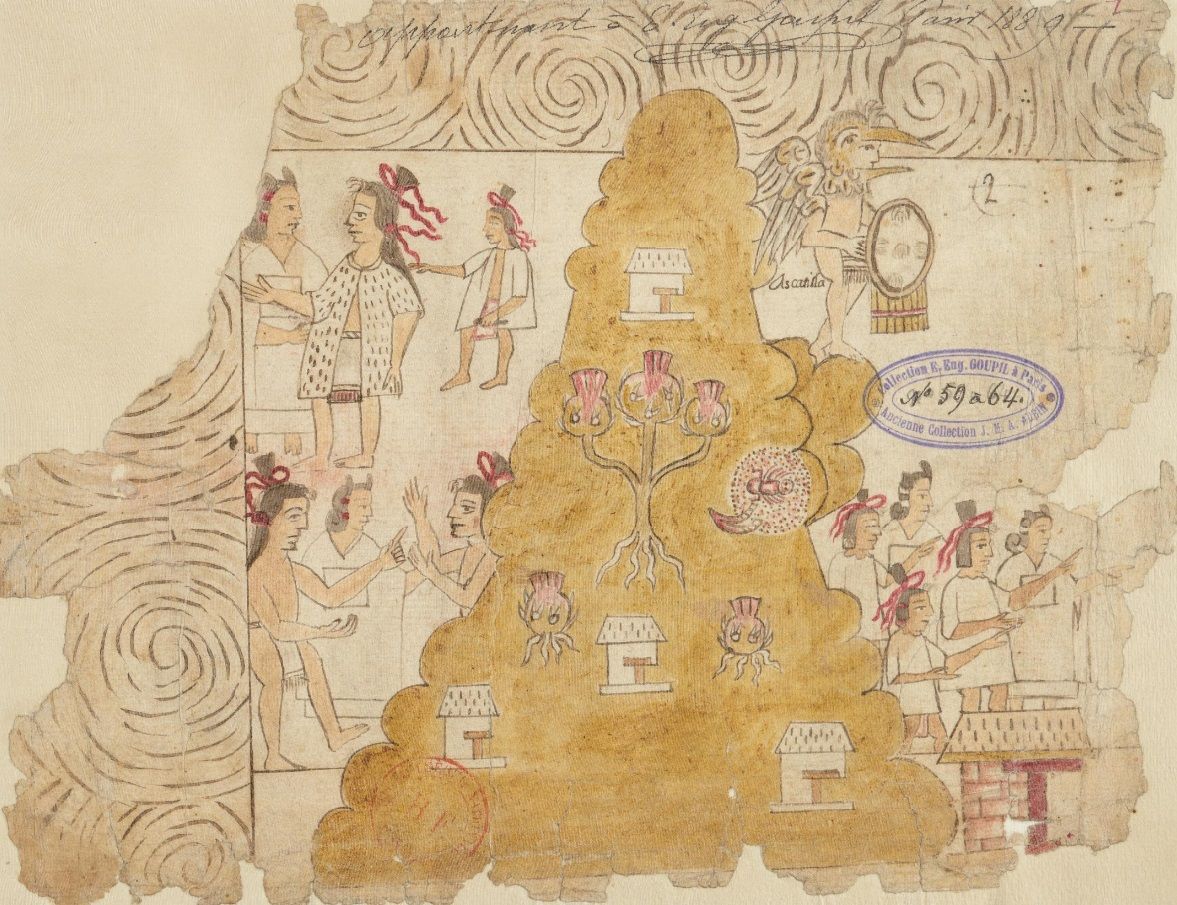 appartenant à E. Eug Goupil Paris 1889
2
Ascatilla
Collection E. Eug. GOUPIL à Paris
Nº 59 à 64.
Ancienne Collection J. M. A. AUBIN